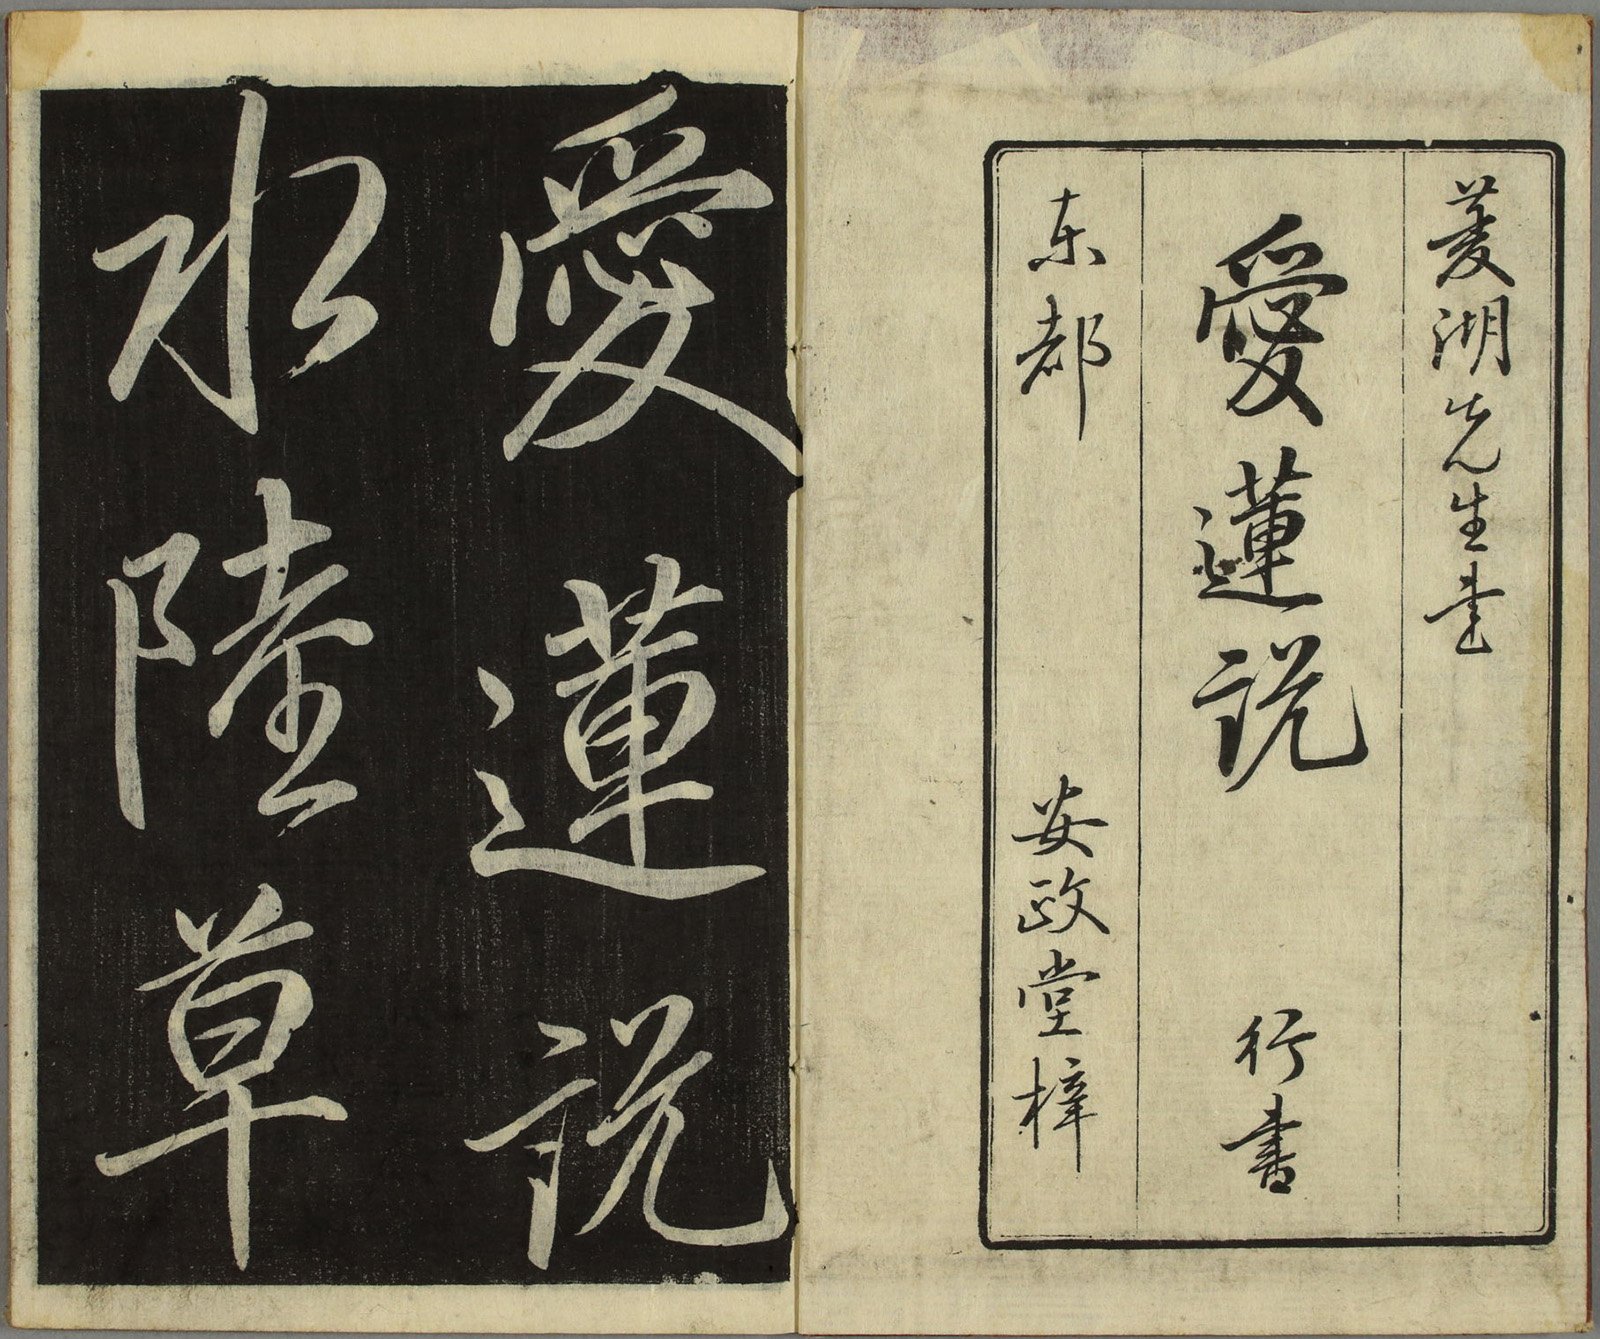 菱湖先生書
愛蓮説　行書
东都　安政堂梓
愛蓮説
水陸草